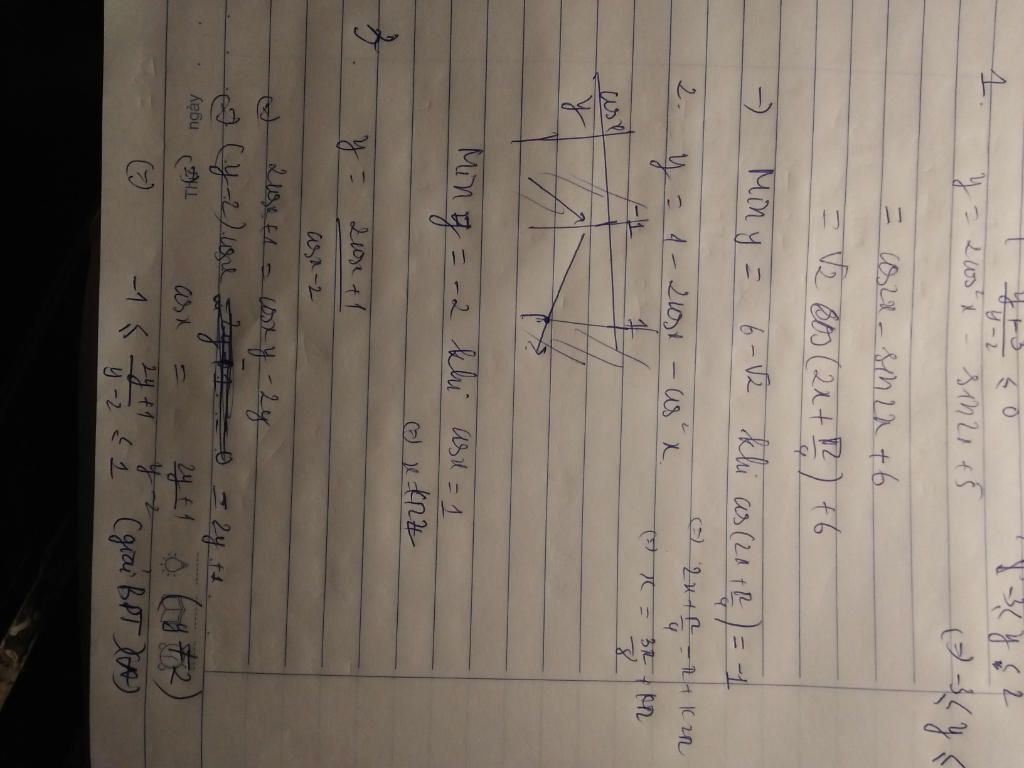 1. y = 2cos²x - sin2x + 5
= cos2x - sin2x + 6
= √2 cos(2x + π/4) + 6
→) Min y = 6 - √2 khi cos(2x + π/4) = -1
(=) 2x + π/4 = π + k2π
(=) x = 3π/8 + kπ
2. y = 1 - 2cosx - cos²x
cosx -1 1
y -2
Min y = -2 khi cosx = 1
(=) x = k2π
3. y = (2cosx + 1)/(cosx - 2)
(=) 2cosx + 1 = cosx y - 2y
(=) (y-2)cosx = 2y + 1
Ngày
(=) cosx = (2y + 1)/(y - 2)
(=) -1 ≤ (2y + 1)/(y - 2) ≤ 1 (giải BPT
(y + 3)/(y - 2) ≤ 0
-3 ≤ y ≤ 2
(=) -3 ≤ y ≤